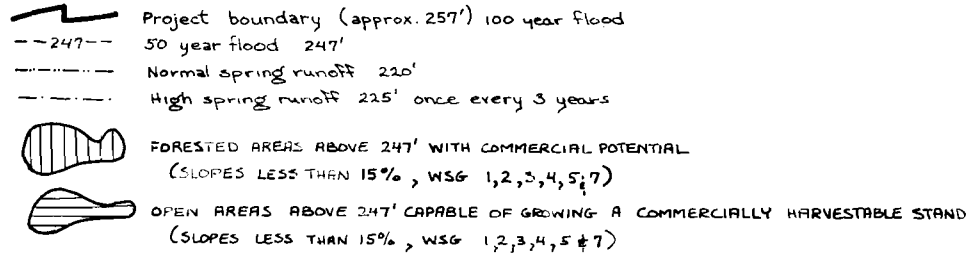 Project boundary (approx. 257') 100 year flood
--247-- 50 year flood 247'
Normal spring runoff 220'
High spring runoff 225' once every 3 years
FORESTED AREAS ABOVE 247' WITH COMMERCIAL POTENTIAL
(SLOPES LESS THAN 15%, WSG 1,2,3,4,5 & 7)
OPEN AREAS ABOVE 247' CAPABLE OF GROWING A COMMERCIALLY HARVESTABLE STAND
(SLOPES LESS THAN 15%, WSG 1,2,3,4,5 & 7)